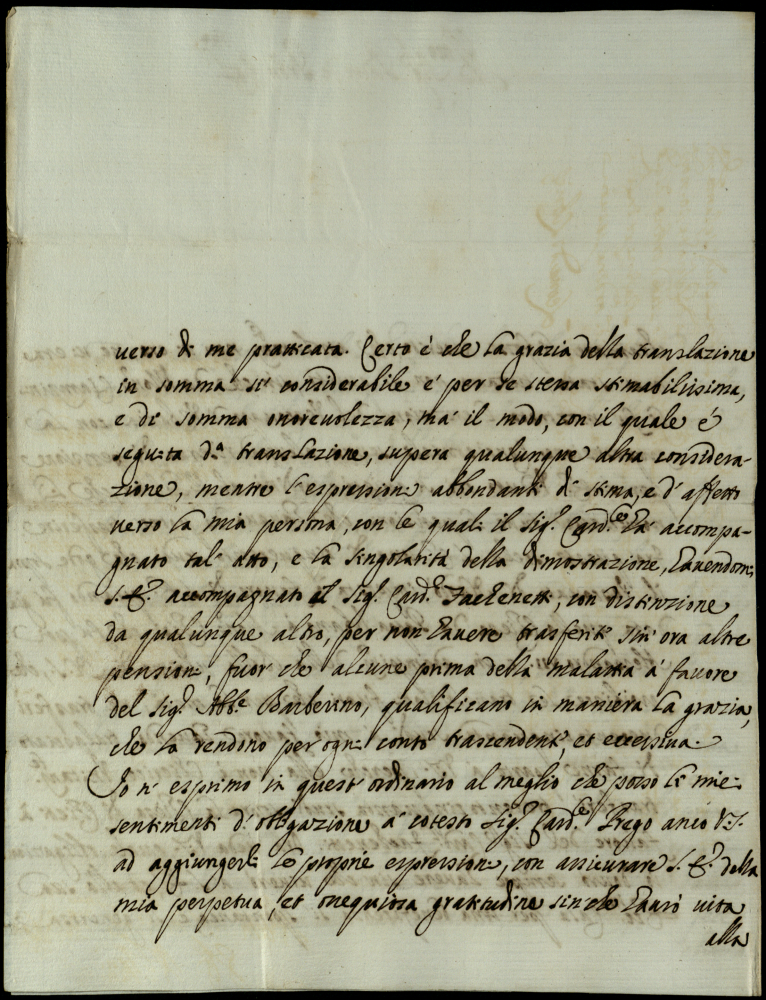 verso di me pratticata. Certo è che la grazia della translazione
in somma sì considerabile è per se stessa stimabilissima,
e di somma onorevolezza, mà il modo, con il quale è
seguita d.ª translazione, supera qualunque altra considera-
zione, mentre l'espressioni abbondanti di stima, e d'affetto
verso la mia persona, con le quali il Sig.ʳ Card.ˡᵉ hà accompa-
gnato tal' atto, e la singolarità della dimostrazione, havendomi
S. E. accompagnato al Sig.ʳ Card.ˡᵉ Fachenetti, con distinzione
da qualunque altro, per non havere trasferite sin' ora altre
pensioni, fuor che alcune prima della malattia à favore
del Sig.ʳ Abb.ᵉ Barberino, qualificano in maniera la grazia,
che la rendono per ogni conto trascendente, et eccessiva.
Io n' esprimo in quest' ordinario al meglio che posso li miei
sentimenti d' obligazione à cotesto Sig.ʳ Card.ˡᵉ Prego anco V.S.
ad aggiungerli le proprie espressioni, con assicurare S. E. della
mia perpetua, et ossequiosa gratitudine sin che havrò vita
alla